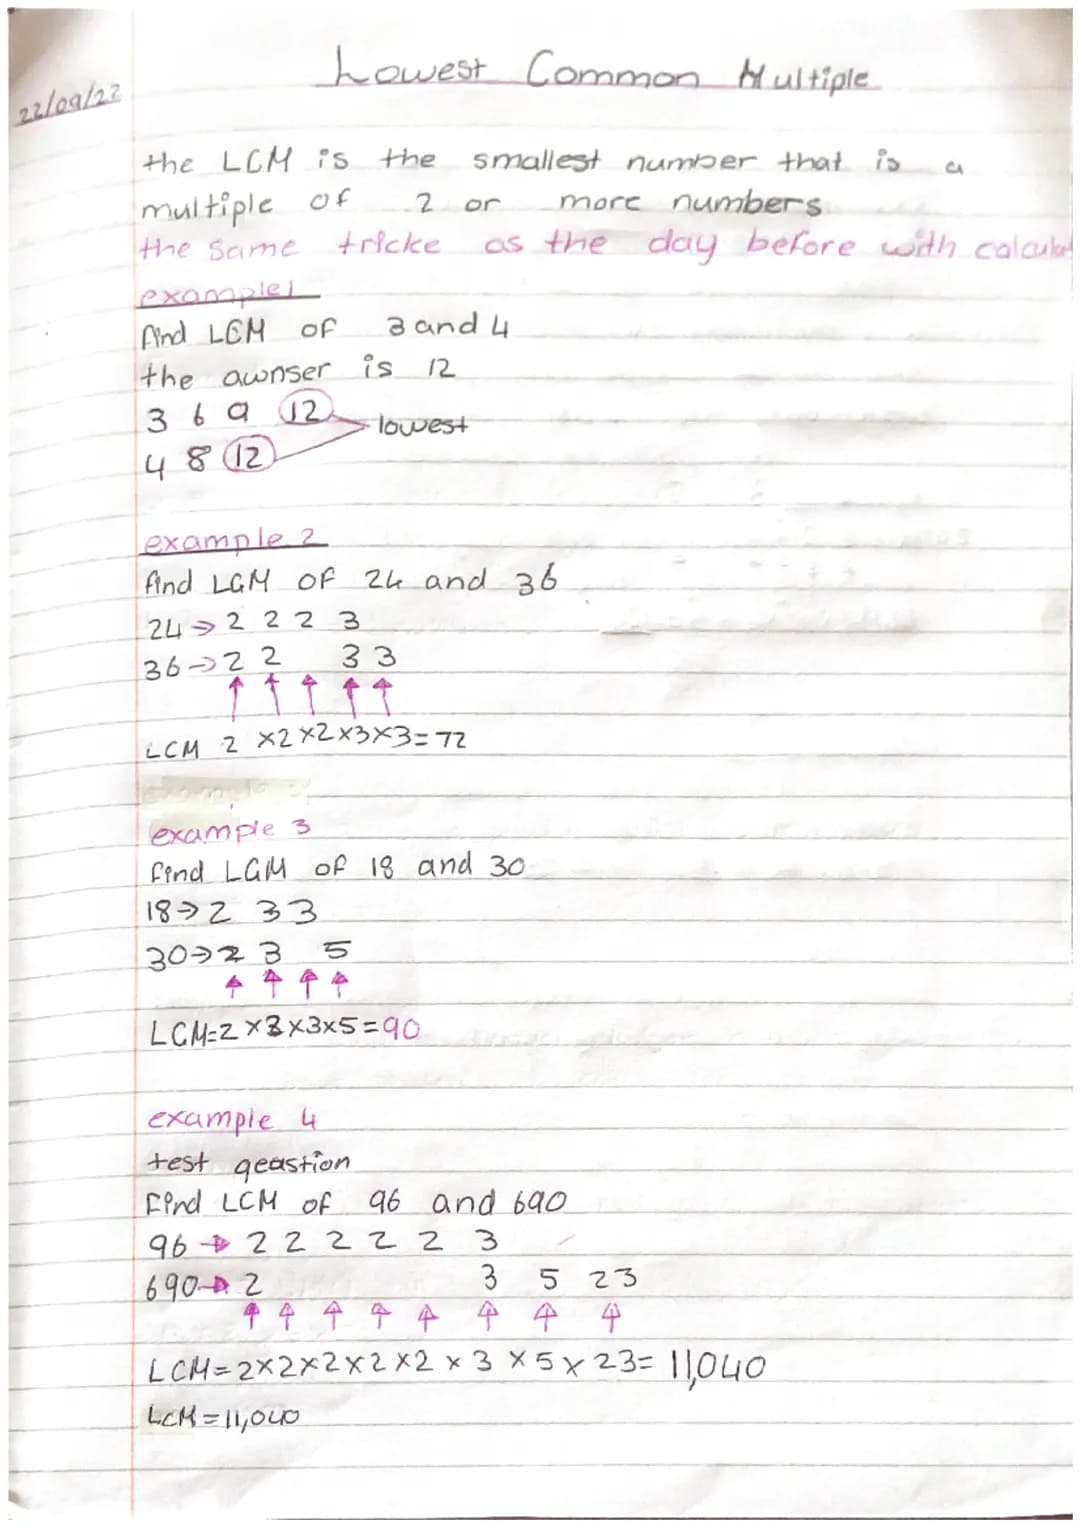 Lowest Common Multiple
22/09/22
the LCM is the smallest number that is a
multiple of 2 or more numbers
the same tricke as the day before with calculat
example 1
find LCM of 3 and 4
the awnser is 12
3 6 9 12
lowest
4 8 12
example 2
find LCM OF 24 and 36
24→ 2 2 2 3
36→ 2 2 3 3
LCM 2 ×2×2×3×3=72
example 3
find LCM of 18 and 30
18→2 3 3
30→2 3 5
LCM=2×3×3×5=90
example 4
test qeastion
Find LCM of 96 and 690
96→ 2 2 2 2 2 3
690→ 2 3 5 23
LCM=2×2×2×2×2×3×5×23= 11,040
LCM=11,040